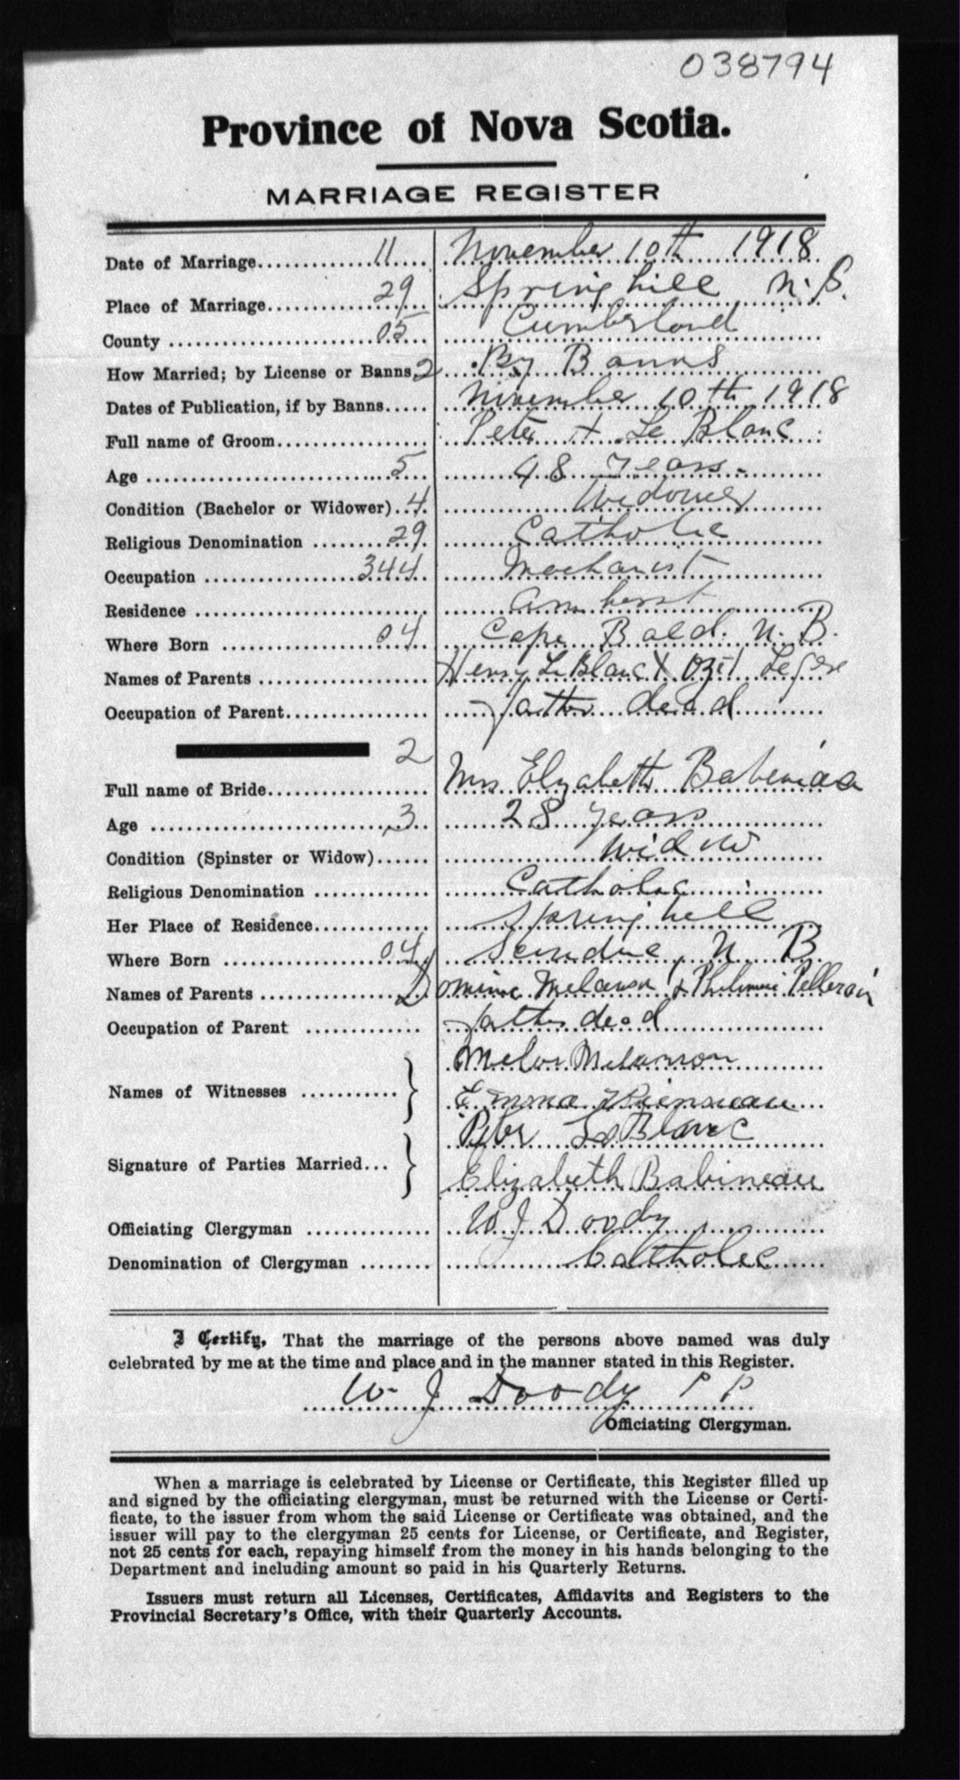 038794
Province of Nova Scotia.
MARRIAGE REGISTER
Date of Marriage..............11.... November 10th 1918
Place of Marriage.............29... Springhill N. S.
County ........................05 Cumberland
How Married; by License or Banns. 2 By Banns
Dates of Publication, if by Banns..... November 10th 1918
Full name of Groom.................. Peter A Le Blanc
Age ..........................5... 48 Years
Condition (Bachelor or Widower)..4. Widower
Religious Denomination ........29 Catholic
Occupation ..................344. Mechanist
Residence ........................... Amherst
Where Born ..................04. Cape Bald. N. B.
Names of Parents .................... Henry Le Blanc & Legere
Occupation of Parent................. father dead
2
Full name of Bride................... Mrs Elizabeth
Age ..........................3.. 28 years
Condition (Spinster or Widow)...... widow
Religious Denomination .............. Catholic
Her Place of Residence.............. Springhill
Where Born ..................04. N B
Names of Parents .................... Dominic Melanson & Pellerin
Occupation of Parent ............. father dead
Melanson
Names of Witnesses ........... } Emma
Peter LeBlanc
Signature of Parties Married... } Elizabeth Babineau
Officiating Clergyman .............. W J Doody
Denomination of Clergyman ........ Catholic
I Certify, That the marriage of the persons above named was duly
celebrated by me at the time and place and in the manner stated in this Register.
W. J Doody P P
Officiating Clergyman.
When a marriage is celebrated by License or Certificate, this Register filled up
and signed by the officiating clergyman, must be returned with the License or Certi-
ficate, to the issuer from whom the said License or Certificate was obtained, and the
issuer will pay to the clergyman 25 cents for License, or Certificate, and Register,
not 25 cents for each, repaying himself from the money in his hands belonging to the
Department and including amount so paid in his Quarterly Returns.
Issuers must return all Licenses, Certificates, Affidavits and Registers to the
Provincial Secretary's Office, with their Quarterly Accounts.